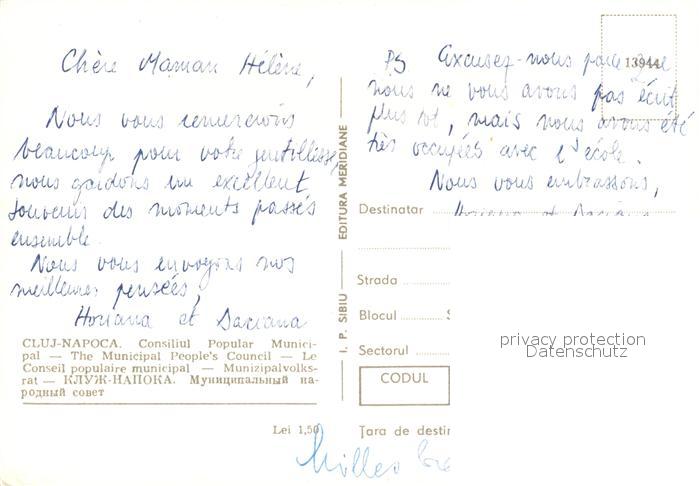 Chère Maman Hélène,
Nous vous remercions
beaucoup pour votre gentillesse,
nous gardons un excellent
souvenir des moments passés
ensemble.
Nous vous envoyons nos
meilleures pensées,
Horiana et Daciana
CLUJ-NAPOCA. Consiliul Popular Munici-
pal — The Municipal People's Council — Le
Conseil populaire municipal — Munizipalvolks-
rat — КЛУЖ-НАПОКА. Муниципальный на-
родный совет
Lei 1,50
I. P. SIBIU — EDITURA MERIDIANE
13944
PS Excusez-nous parce que
nous ne vous avons pas écrit
plus tôt, mais nous avons été
très occupées avec l'école.
Nous vous embrassons,
Horiana et Daciana
Destinatar
Strada
Blocul
Sectorul
CODUL
Țara de destin
privacy protection
Datenschutz